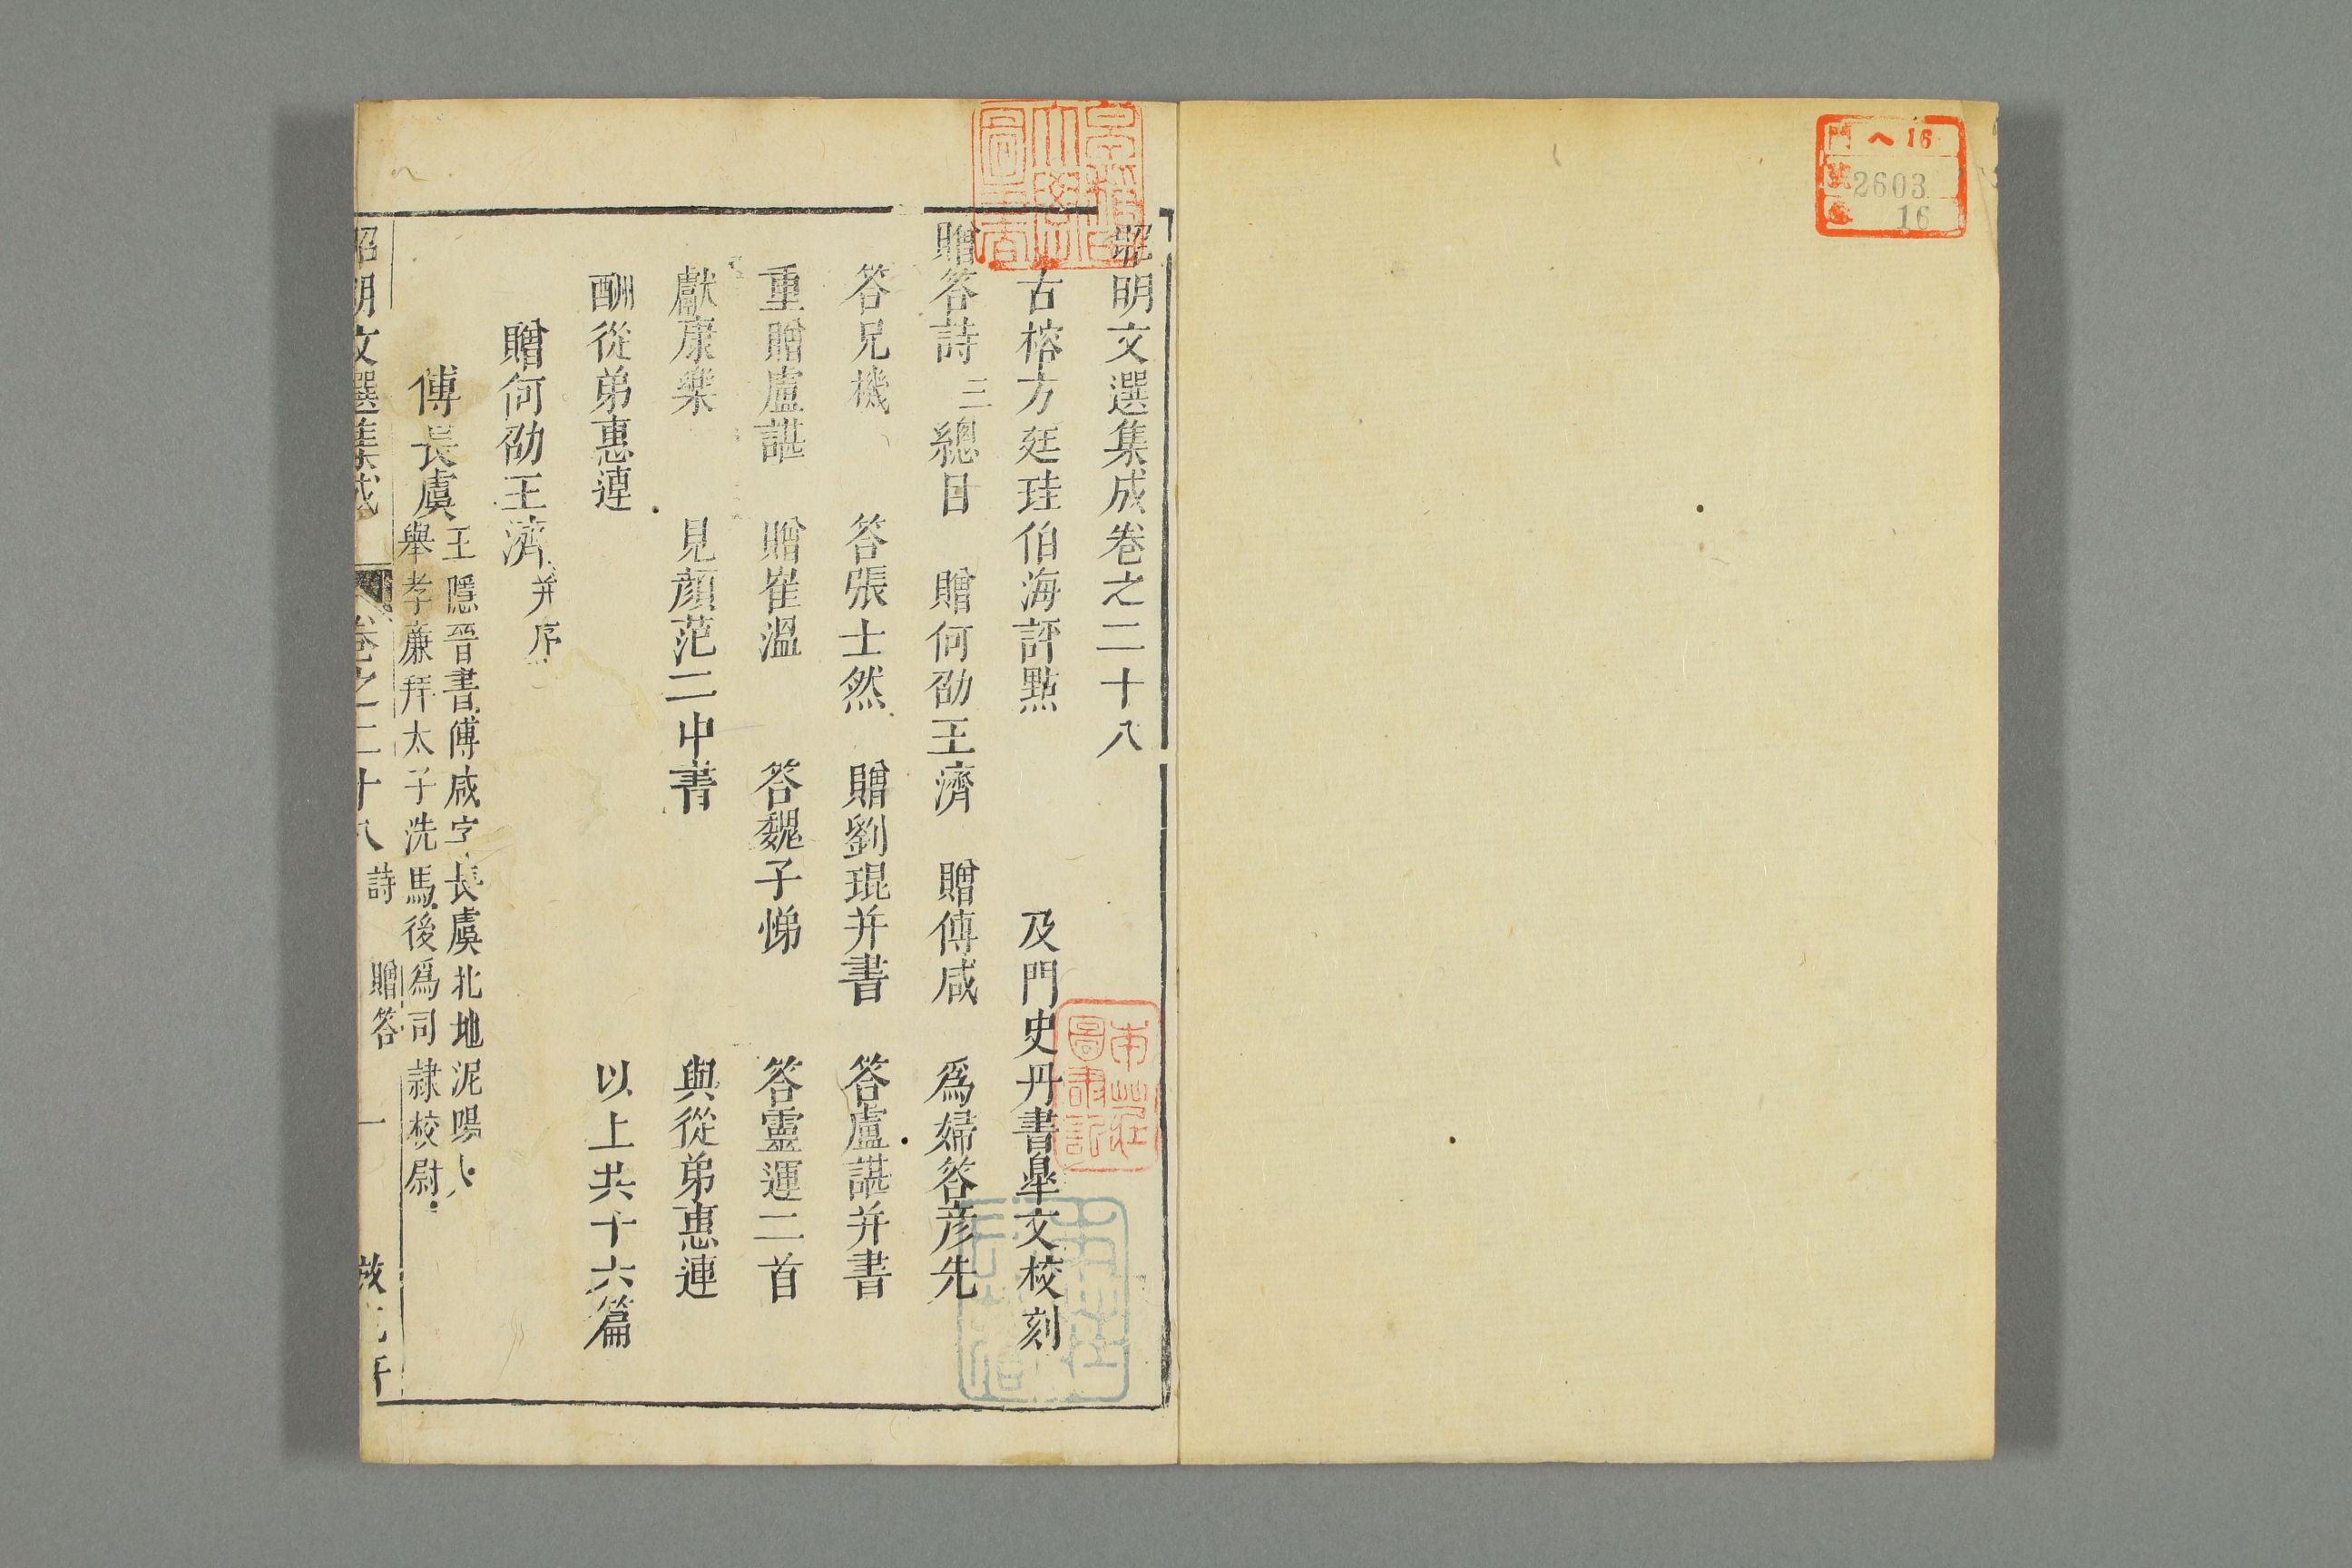 門 ヘ 16
號 2603
卷 16
昭明文選集成卷之二十八
古榕方廷珪伯海評點 及門史丹書臯文校刻
贈答詩三總目 贈何劭王濟 贈傅咸 爲婦答彦先
答兄機 答張士然 贈劉琨并書 答盧諶并書
重贈盧諶 贈崔溫 答魏子悌 答靈運二首
獻康樂 見顏范二中書 與從弟惠連
酬從弟惠連 以上共十六篇
贈何劭王濟并序
傅長虞
王隱晉書傅咸字長虞北地泥陽人
舉孝廉拜太子洗馬後爲司隷校尉
昭明文選集成 卷之二十八 詩 贈答 一